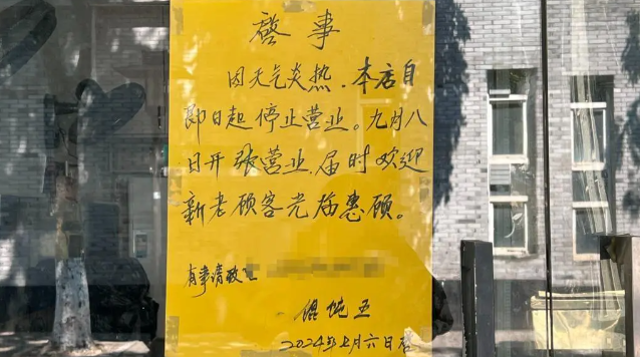 啓事
因天气炎热，本店自
即日起停止营业。九月八
日开张营业，届时欢迎
新老顾客光临惠顾。
有事请致电
馄饨王
2024年七月六日启